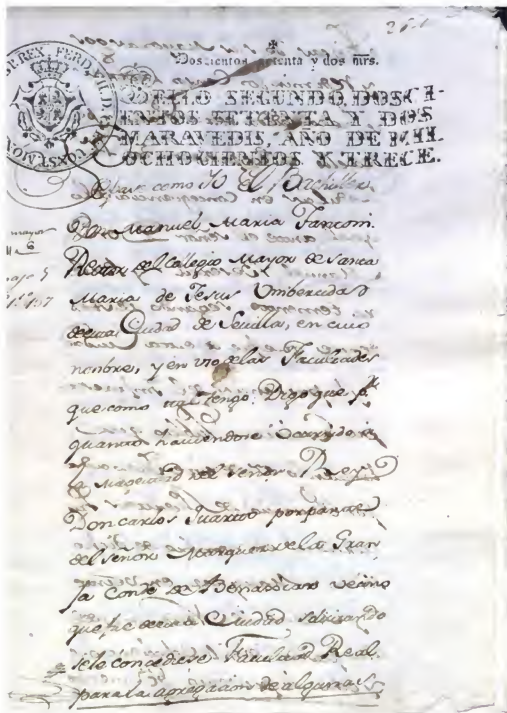 Doszientos setenta y dos mrs.
SELLO SEGUNDO, DOSCI-
ENTOS SETENTA Y DOS
MARAVEDIS, AÑO DE MIL
OCHOCIENTOS Y TRECE.
como Yo El Bachiller
Don Manuel Maria
Rector del Collegio Mayor de Santa
Maria de Jesus Unibercidad
de esta Ciudad de Sevilla, en cuio
nombre, y en uso de las Facultades
que como tal tengo: Digo que pr.
quanto haviendose ocurrido a
la Magestad del señor Rey
Don Carlos Quarto por parte
del señor Marques de la Gran
ja Conde de Venavides? vecino
que fue de esta Ciudad solicitando
se le concediese Facultad Real
para la agregacion de algunas